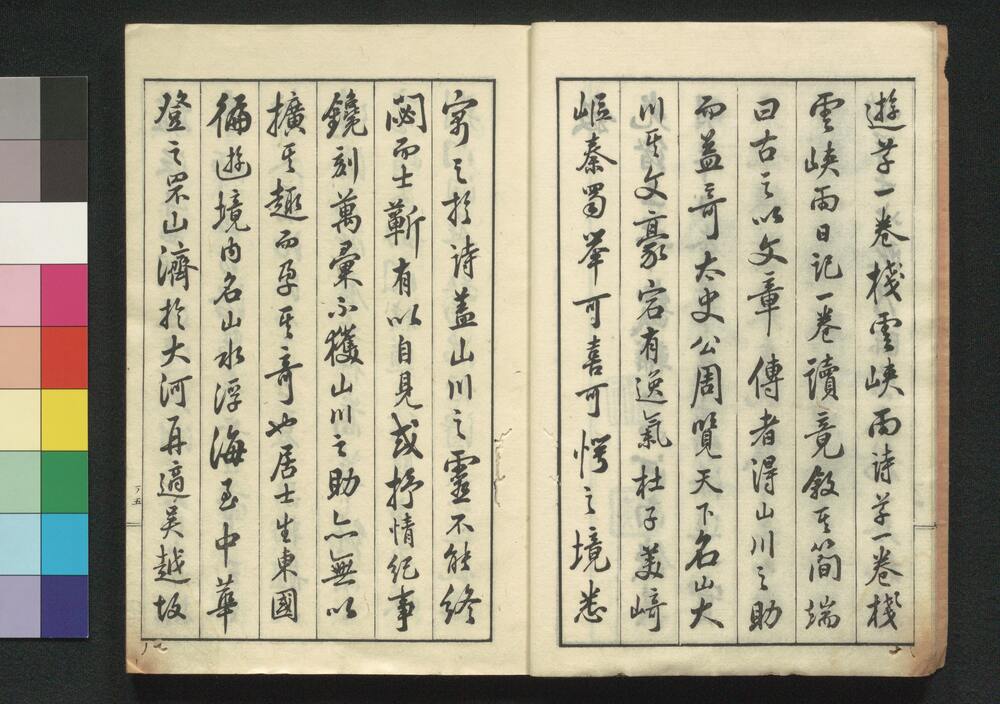 遊草一卷棧雲峽雨詩草一卷棧
雲峽雨日記一卷讀竟敘其簡端
曰古之以文章傳者得山川之助
而益奇太史公周覽天下名山大
川其文豪宕有逸氣杜子美崎
嶇秦蜀舉可喜可愕之境悉
寄之於詩蓋山川之靈不能終
閟而士蘄有以自見或抒情紀事
鑱刻萬彙不獲山川之助亦無以
擴其趣而孕其奇也居士生東國
徧遊境內名山水浮海至中華
登之罘山濟於大河再適吳越故